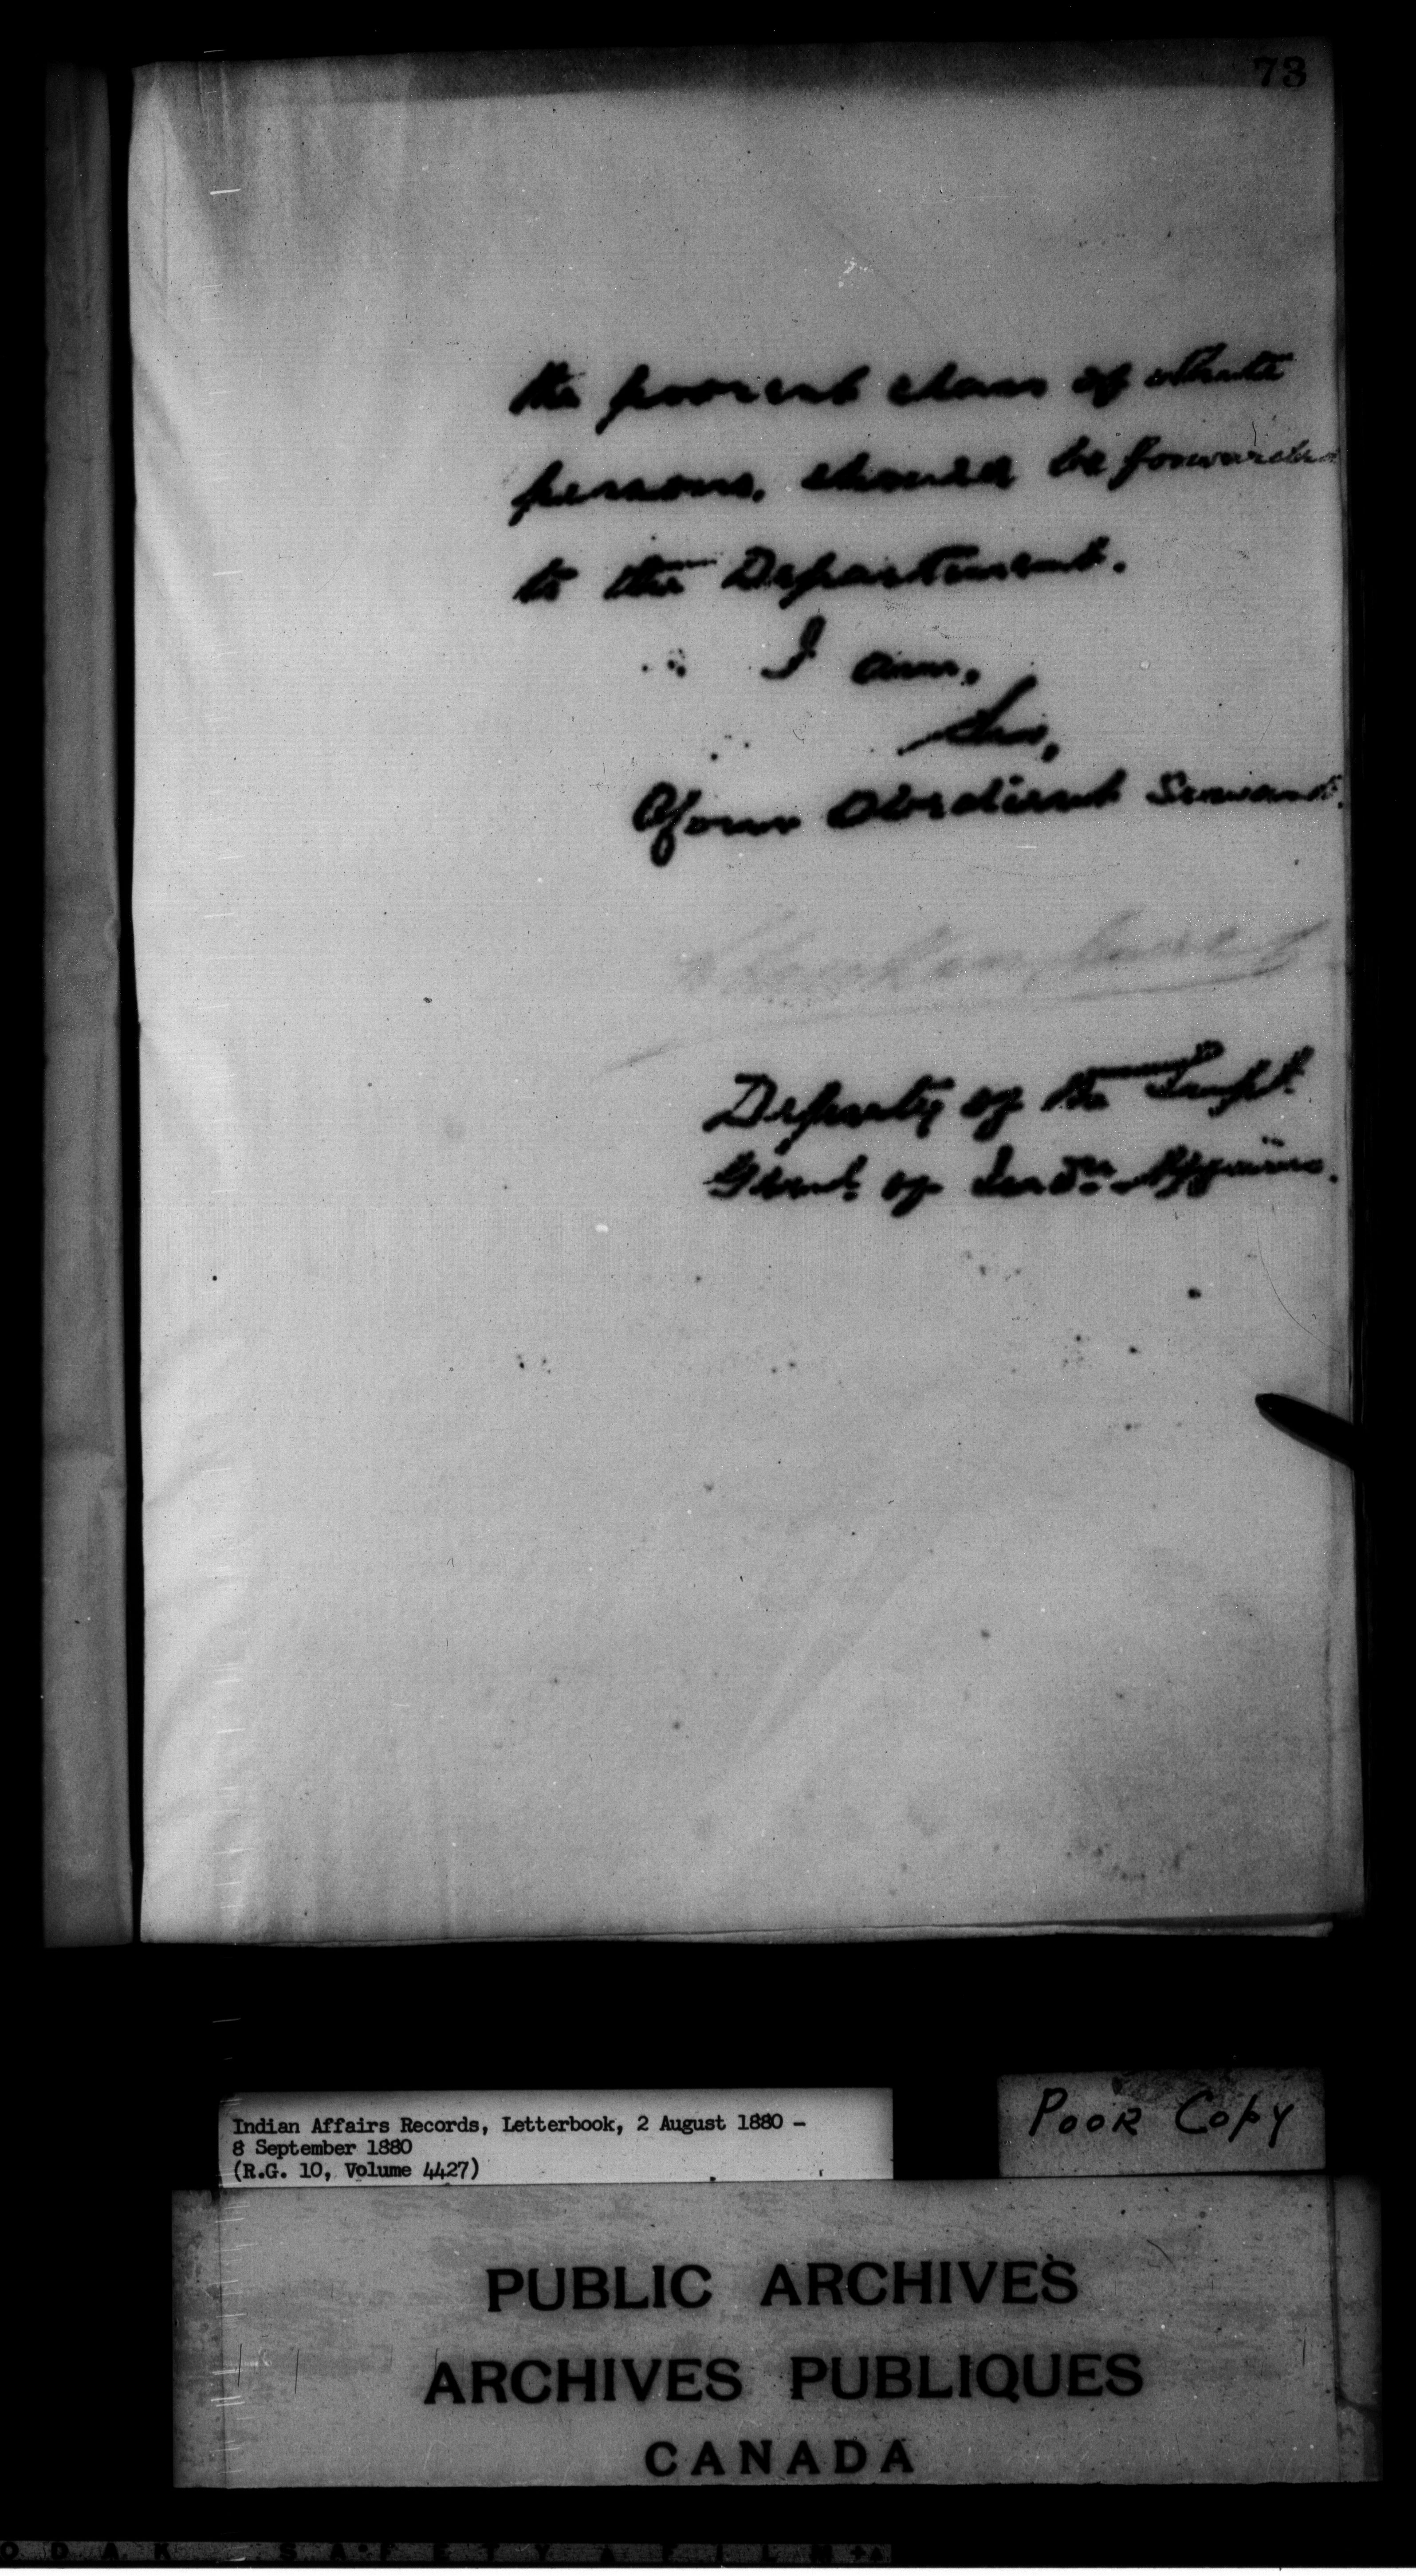 73
the poorest class of white
persons, should be forwarded
to the Department.
I am,
Sir,
Your Obedient Servant.
Deputy of the Supt.
Genl. of Indn. Affairs.
Indian Affairs Records, Letterbook, 2 August 1880 -
8 September 1880
(R.G. 10, Volume 4427)
POOR COPY
PUBLIC ARCHIVES
ARCHIVES PUBLIQUES
CANADA